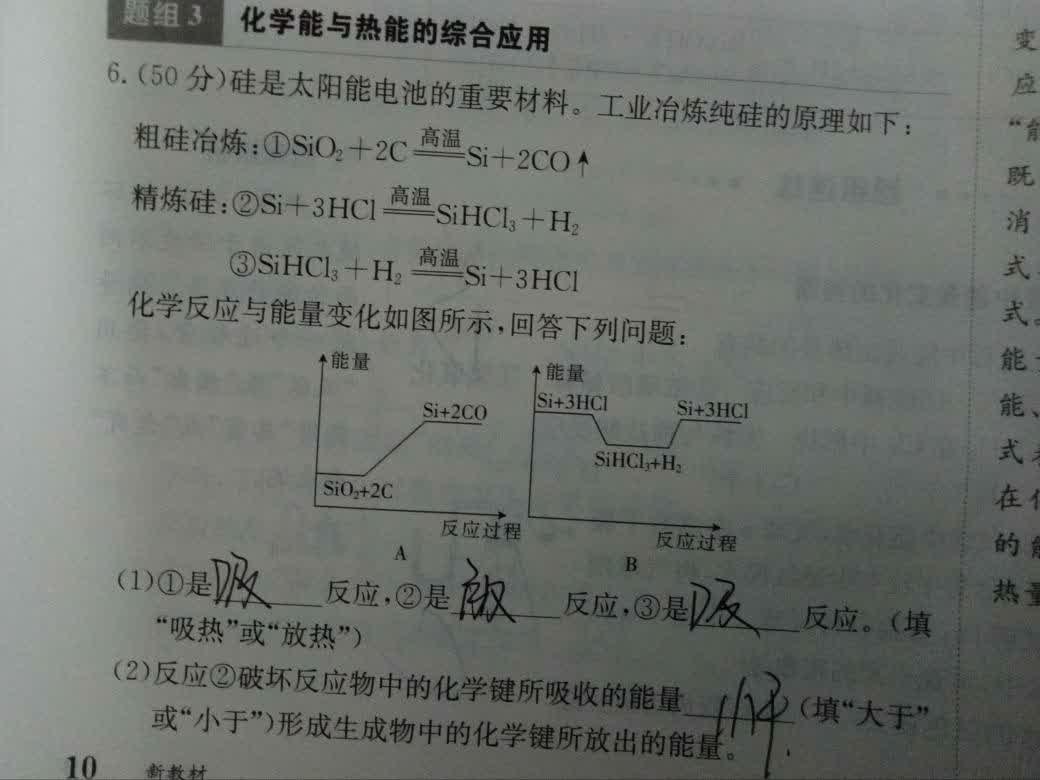 题组3 化学能与热能的综合应用
6.(50分)硅是太阳能电池的重要材料。工业冶炼纯硅的原理如下:
粗硅冶炼:①SiO₂+2C 高温 Si+2CO↑
精炼硅:②Si+3HCl 高温 SiHCl₃+H₂
③SiHCl₃+H₂ 高温 Si+3HCl
化学反应与能量变化如图所示,回答下列问题:
能量
Si+2CO
SiO₂+2C
反应过程
A
能量
Si+3HCl
Si+3HCl
SiHCl₃+H₂
反应过程
B
(1)①是吸反应,②是放反应,③是吸反应。(填
“吸热”或“放热”)
(2)反应②破坏反应物中的化学键所吸收的能量小于(填“大于”
或“小于”)形成生成物中的化学键所放出的能量。
10 新教材
变
应
“能
既
消
式
式。
能
能、
式
在
的
热量